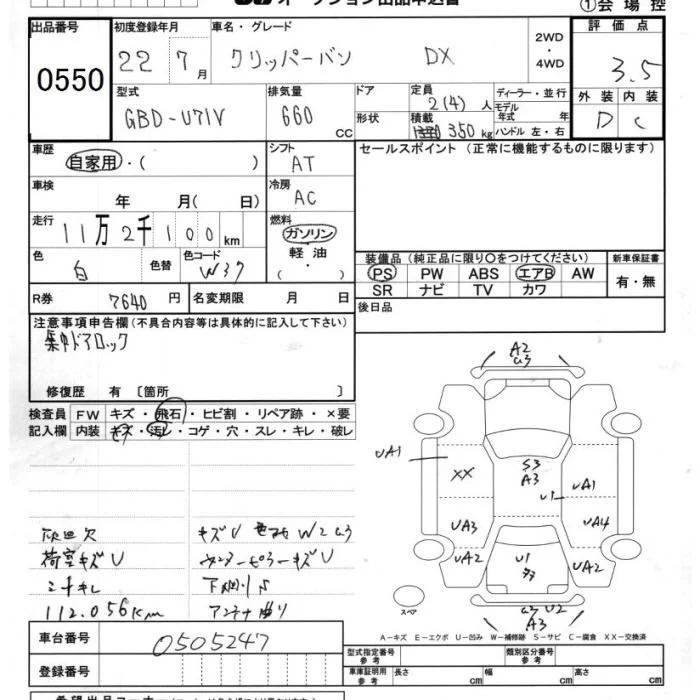 オークション出品申込書
①会場控
出品番号 0550
初度登録年月 22 7月
車名・グレード クリッパーバン DX
2WD ・ 4WD
評価点 3.5
型式 GBD-U71V
排気量 660 CC
ドア
形状
定員 2(4)人
積載 350kg
ディーラー・並行
モデル年式 年
ハンドル 左・右
外装 D
内装 C
車歴 自家用・( )
シフト AT
セールスポイント (正常に機能するものに限ります)
車検 年 月( 日)
冷房 AC
走行 11万2千100km
燃料 ガソリン ・ 軽油 ・( )
色 白
色替
色コード W37
装備品(純正品に限り○をつけてください)
PS PW ABS エアB AW
SR ナビ TV カワ
新車保証書 有・無
R券 7640円
名変期限 月 日
後日品
注意事項申告欄(不具合内容等は具体的に記入して下さい)
集中ドアロック
修復歴 有 〔箇所 〕
検査員記入欄
FW キズ・飛石・ヒビ割・リペア跡・×要
内装 キズ・汚レ・コゲ・穴・スレ・キレ・破レ
A2
UA1
XX
S3
A3
U1
UA1
UA3
UA4
UA2
U1
UA2
U2
A3
スペア
荷室キズU
キズU
W2
下廻りS
112,056km
アンテナ曲り
A-キズ E-エクボ U-凹み W-補修跡 S-サビ C-腐食 XX-交換済
車台番号 0505247
登録番号
型式指定番号 参考
類別区分番号 参考
車庫証明用 参考 長さ cm 幅 cm 高さ cm